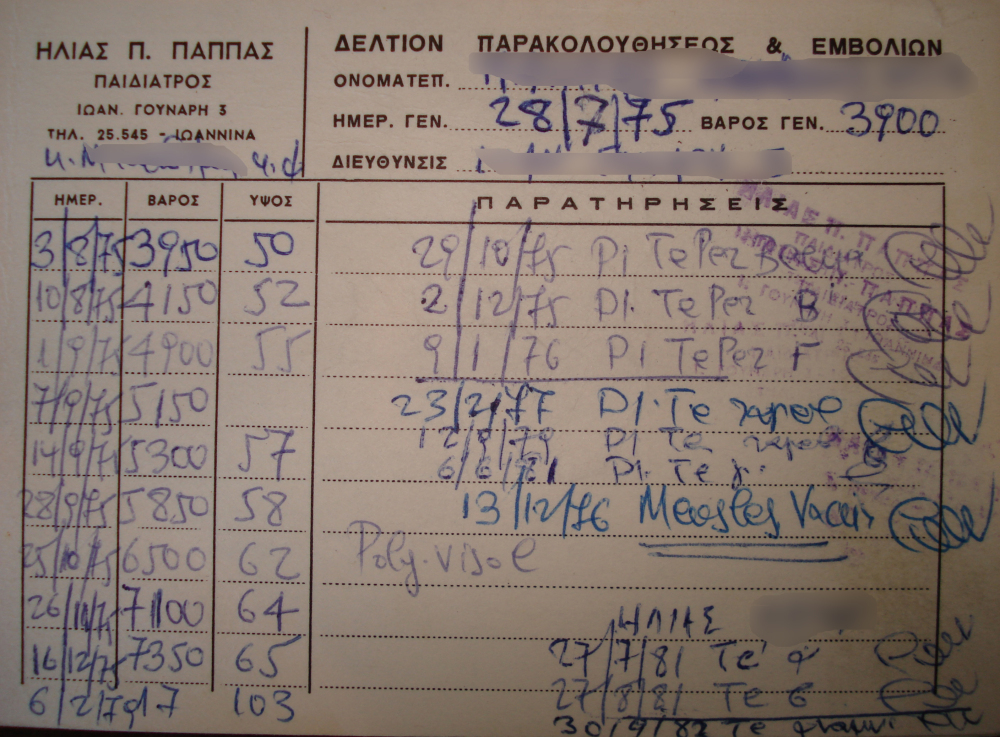 ΗΛΙΑΣ Π. ΠΑΠΠΑΣ
ΠΑΙΔΙΑΤΡΟΣ
ΙΩΑΝ. ΓΟΥΝΑΡΗ 3
ΤΗΛ. 25.545 - ΙΩΑΝΝΙΝΑ
ΔΕΛΤΙΟΝ ΠΑΡΑΚΟΛΟΥΘΗΣΕΩΣ & ΕΜΒΟΛΙΩΝ
ΟΝΟΜΑΤΕΠ.
ΗΜΕΡ. ΓΕΝ. 28/7/75 ΒΑΡΟΣ ΓΕΝ. 3900
ΔΙΕΥΘΥΝΣΙΣ
ΗΜΕΡ. ΒΑΡΟΣ ΥΨΟΣ ΠΑΡΑΤΗΡΗΣΕΙΣ
3/8/75 3950 50 29/10/75 Di Te Per
10/8/75 4150 52 2/12/75 Di. Te Per B
1/9/75 4900 55 9/1/76 Di Te Per F
7/9/75 5150 23/2/77 Di. Te
14/9/75 5300 57 12/9/79 Di Te
6/6/81 Di. Te
28/9/75 5850 58 13/12/76 Measles Vaccin
25/10/75 6500 62 Poly-visol
26/11/75 7100 64 ΗΛΙΑΣ
16/12/75 7350 65 27/7/81 Te
6/2/79 17 103 27/8/81 Te
30/9/82 Te